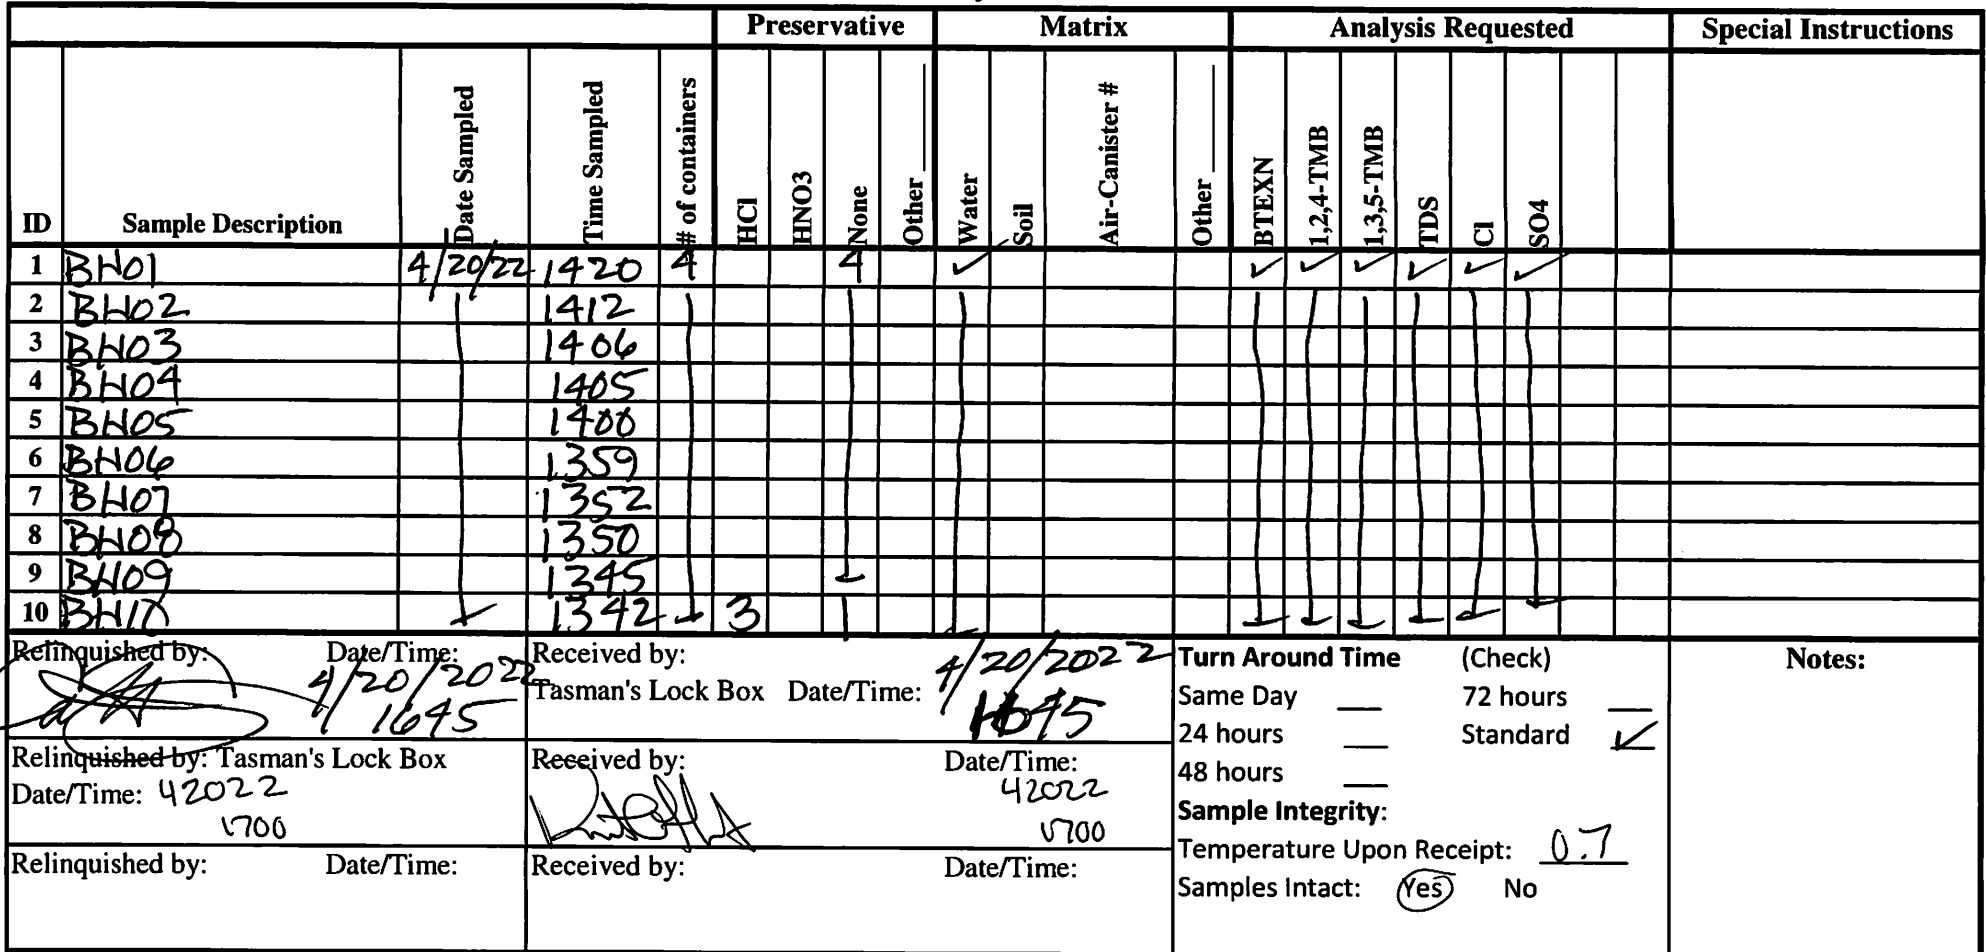 Preservative Matrix Analysis Requested Special Instructions
ID Sample Description Date Sampled Time Sampled # of containers HCl HNO3 None Other ____ Water Soil Air-Canister # Other ____ BTEXN 1,2,4-TMB 1,3,5-TMB TDS Cl SO4
1 BH01 4/20/22 1420 4 4 ✓ ✓ ✓ ✓ ✓ ✓ ✓
2 BH02 1412
3 BH03 1406
4 BH04 1405
5 BH05 1400
6 BH06 1359
7 BH07 1352
8 BH08 1350
9 BH09 1345
10 1342 3 1
Relinquished by: Date/Time: 4/20/2022 1645
Received by: Tasman's Lock Box Date/Time: 4/20/2022 1645
Relinquished by: Tasman's Lock Box
Date/Time: 42022
1700
Received by: Date/Time:
42022
1700
Relinquished by: Date/Time: Received by: Date/Time:
Turn Around Time (Check)
Same Day __ 72 hours __
24 hours __ Standard ✓
48 hours __
Sample Integrity:
Temperature Upon Receipt: 0.7
Samples Intact: Yes No
Notes: